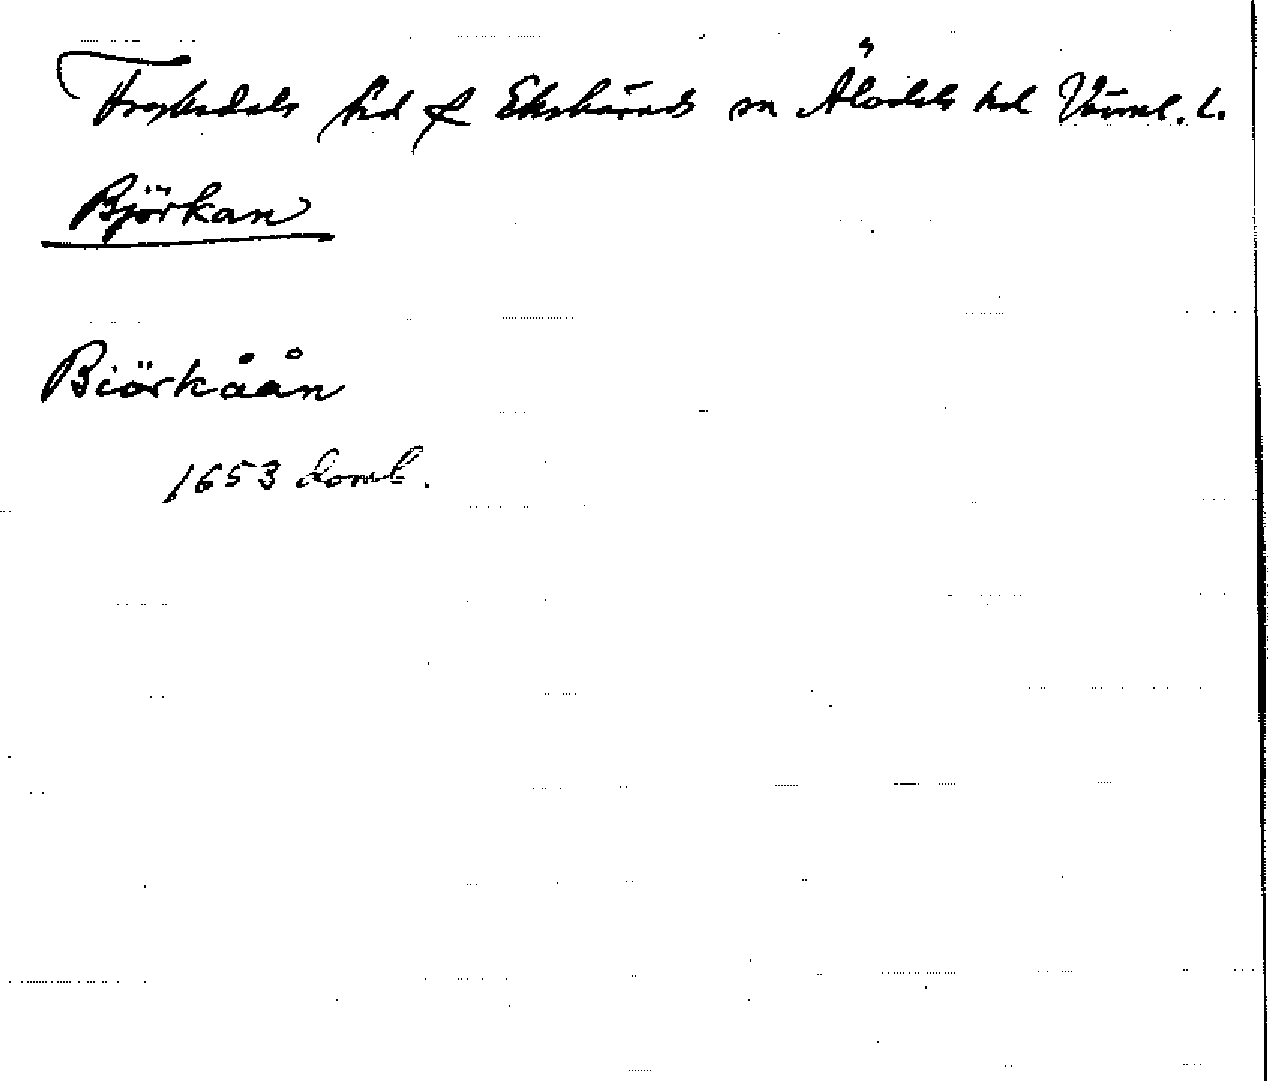 Fryksdals hd f Ekshärads sn Älvdals hd Värml. l.
Björkan
Biörkåån
1653 domb.